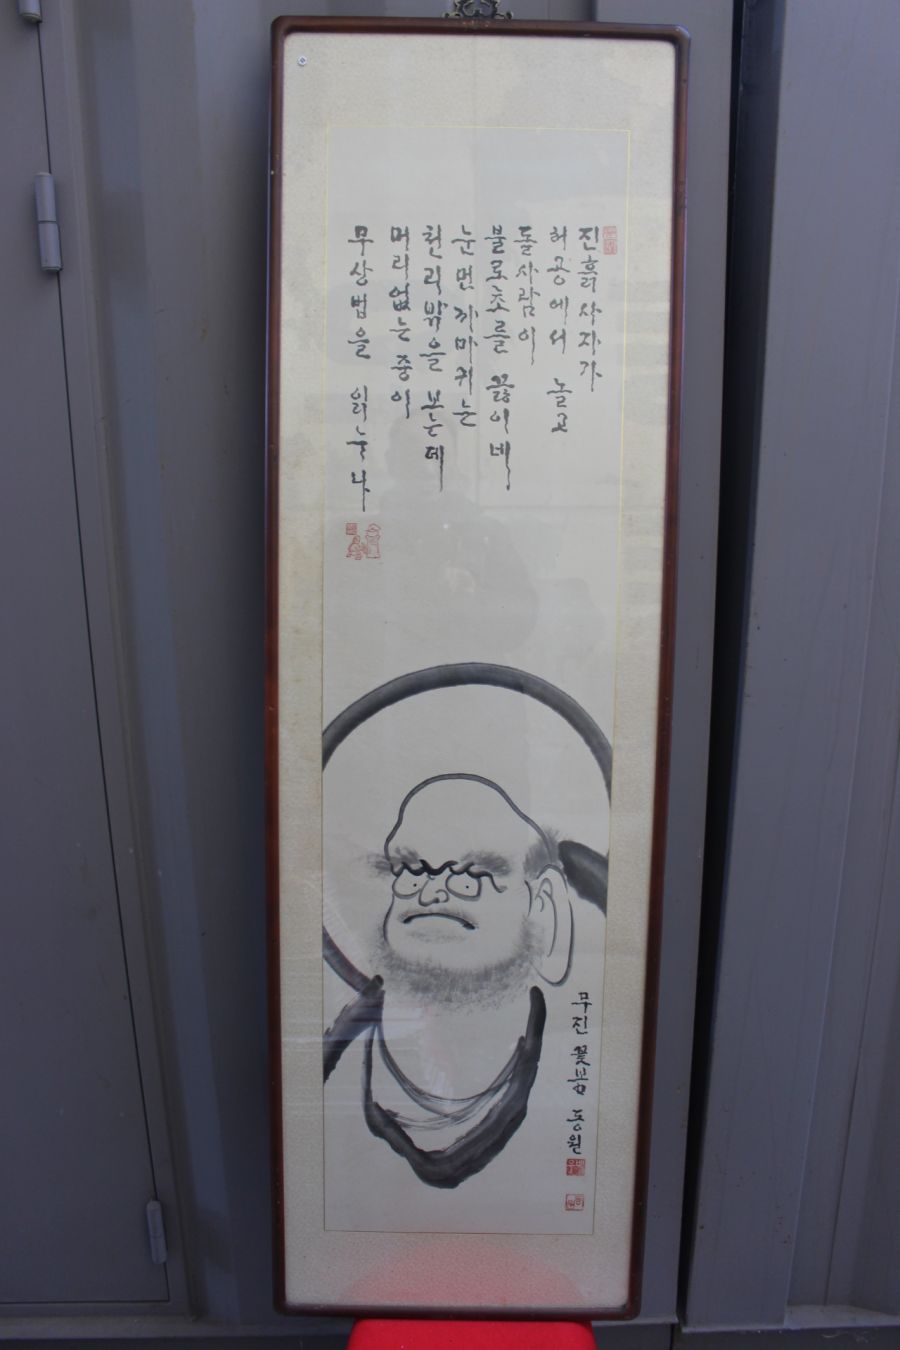 진흙사자가
허공에서 놀고
돌사람이
불로초를 끓이네
눈먼까마귀는
천리밖을 본는데
머리없는중이
무상법을 읽누나
무진 꽃봄 동원